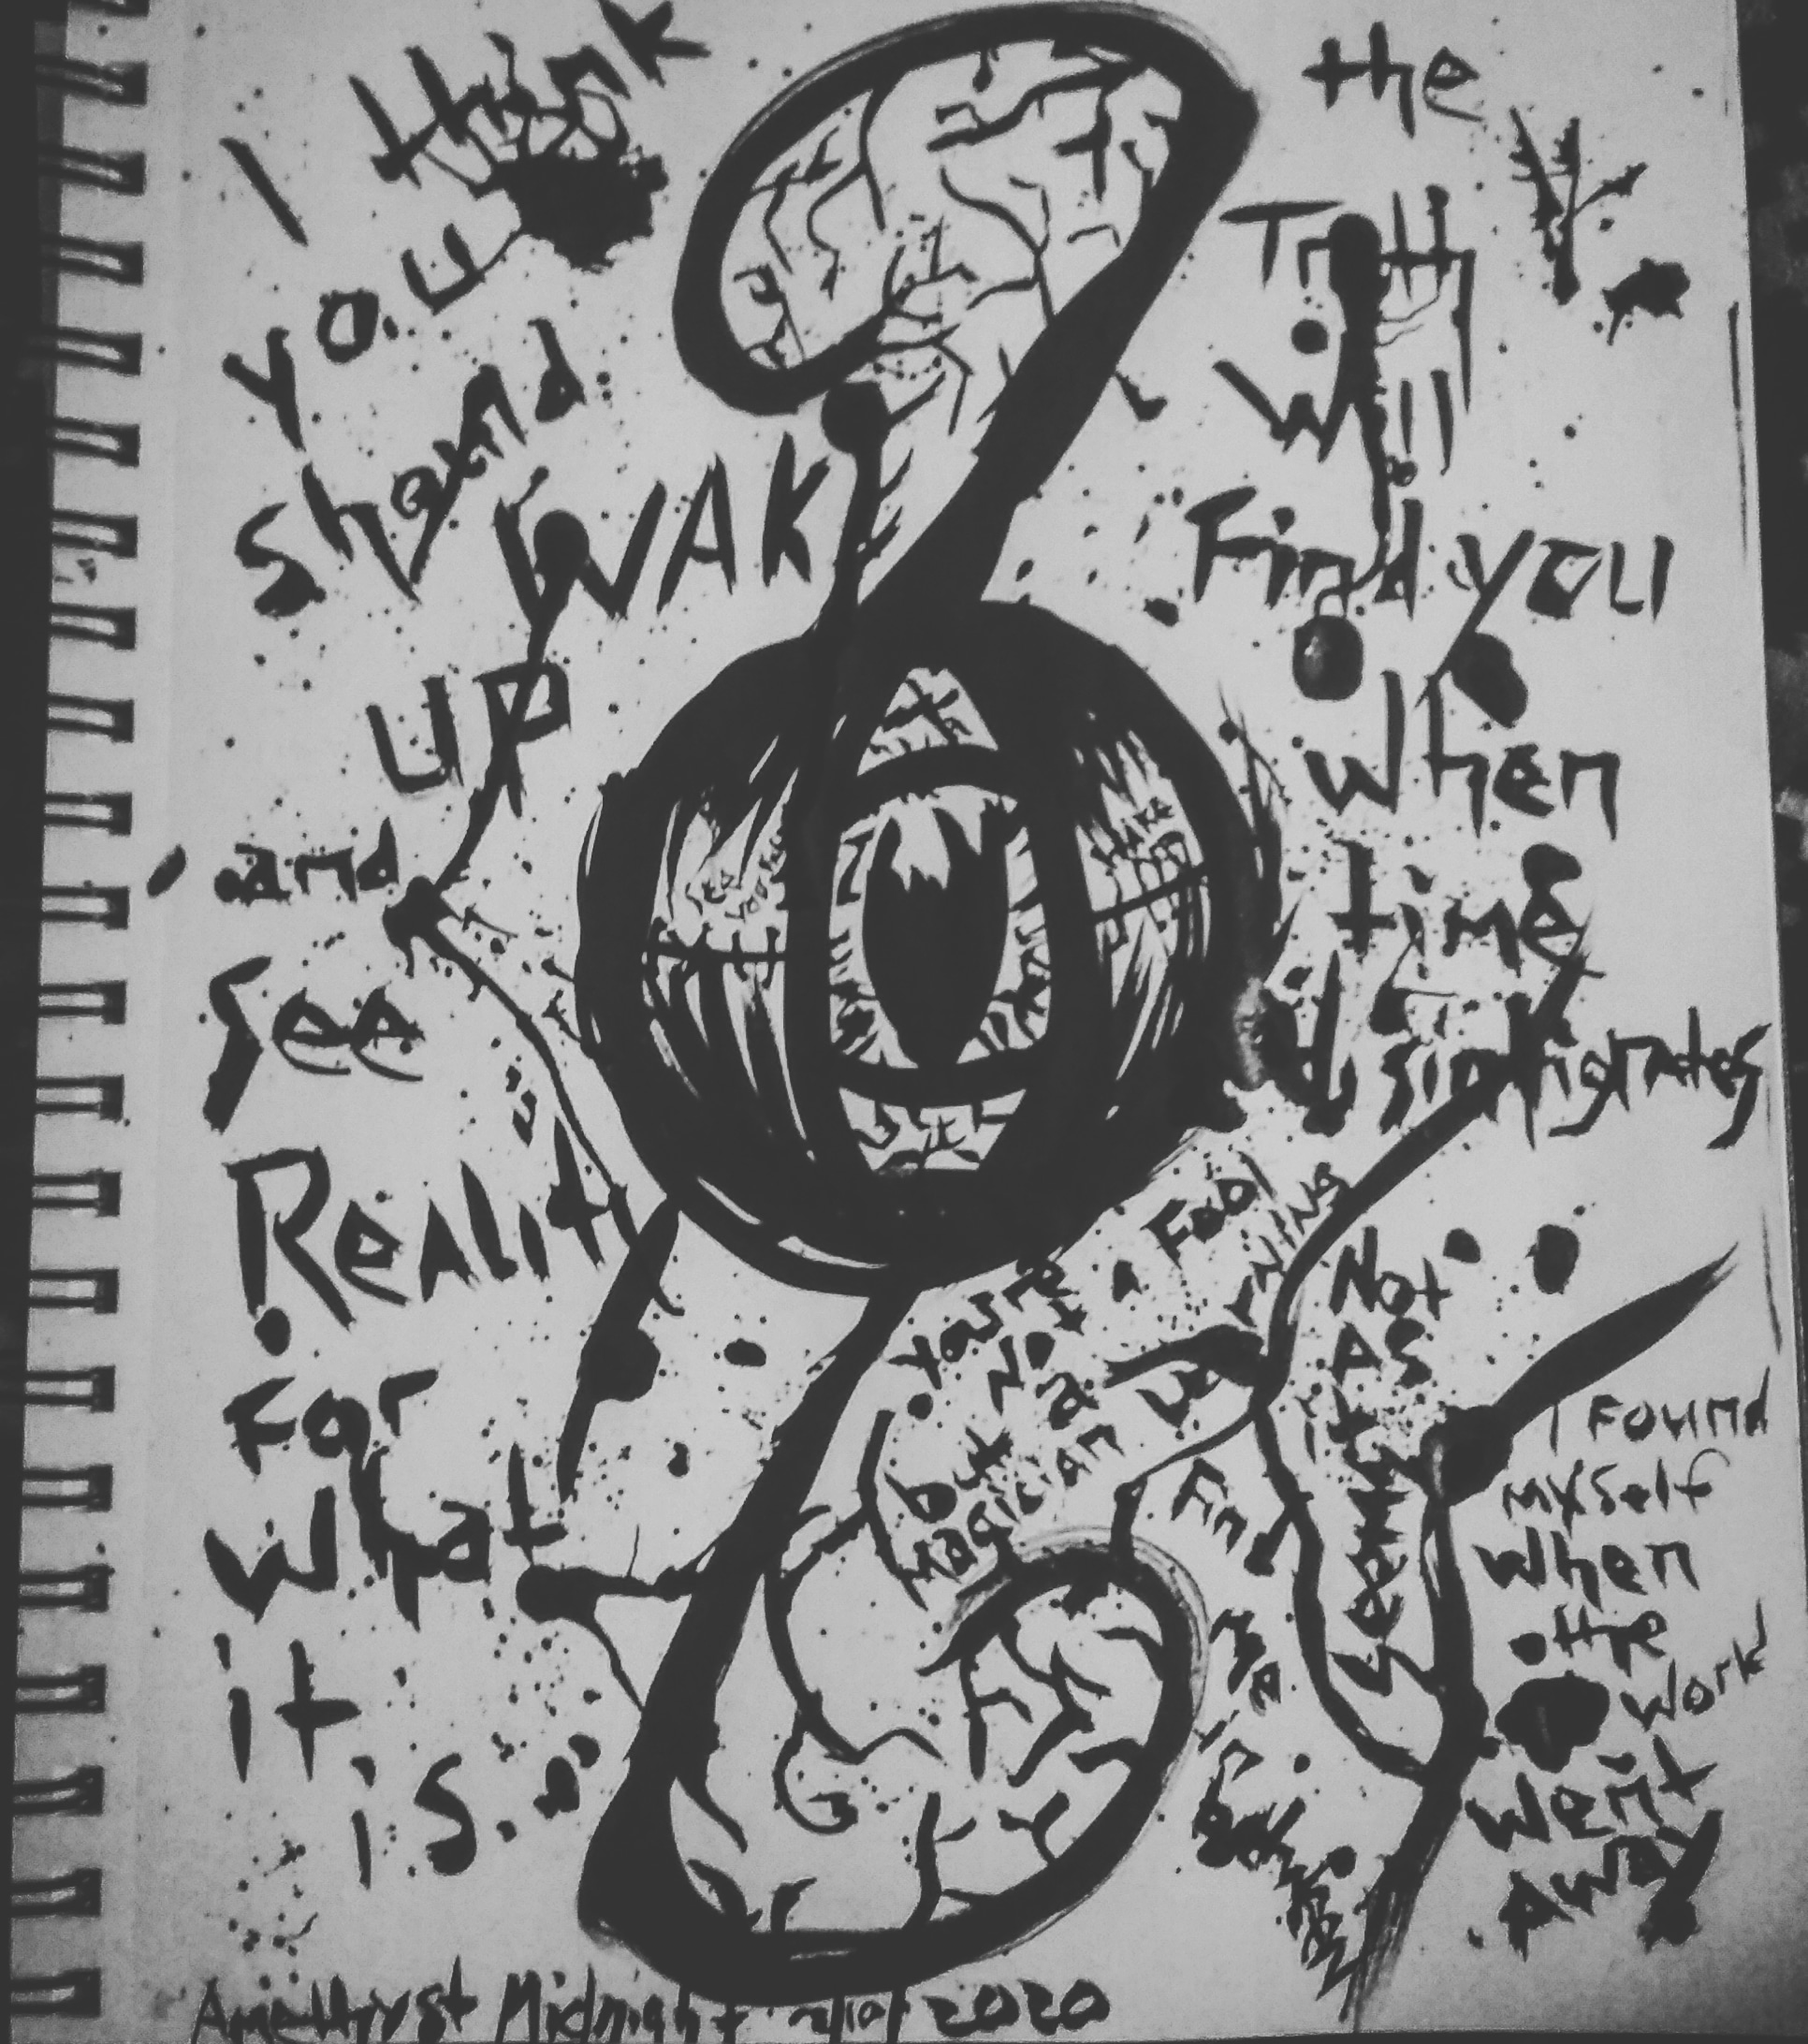 I think
you
should
WAKE
UP
and
See
Reality
For
what
it
is.
the
Truth
will
Find you
when
time
disintigrates
SEE
YOUR
You're a Fool
Not
a
but
Magician
Not
AS
it
I Found
myself
when
the
work
went
Away
Amethyst Midnight 2020